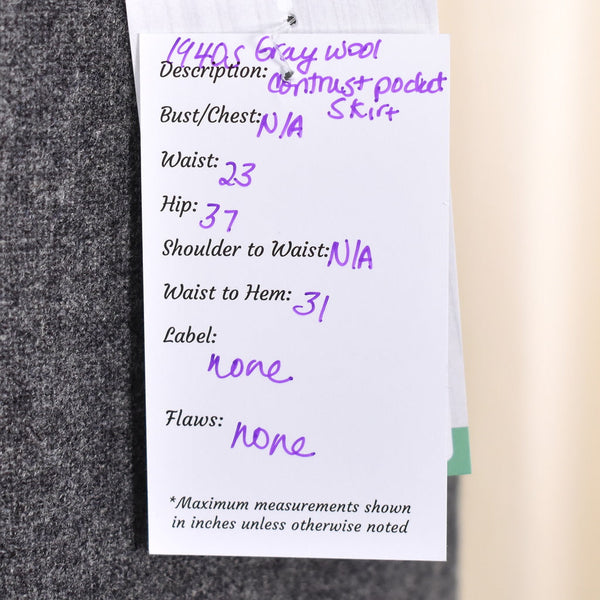 1940s Gray wool
Description: contrast pocket
skirt
Bust/Chest: N/A
Waist: 23
Hip: 37
Shoulder to Waist: N/A
Waist to Hem: 31
Label:
none
Flaws:
none
*Maximum measurements shown
in inches unless otherwise noted